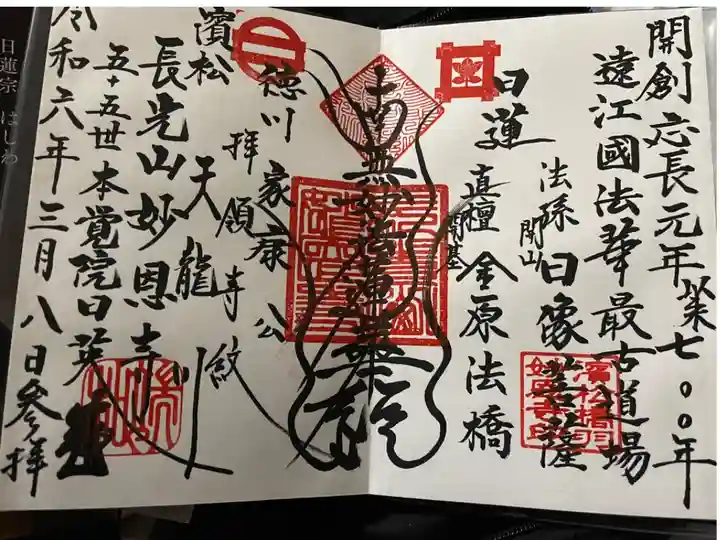 開創応長元年第七〇〇年
遠江國法華最古道場
法孫開山日像菩薩
日蓮直檀開基金原法橋
南無妙法蓮華経
徳川家康公
拝領寺紋
天龍川
濱松
長光山妙恩寺
五十五世本覚院日英
令和六年三月八日参拝
日蓮宗